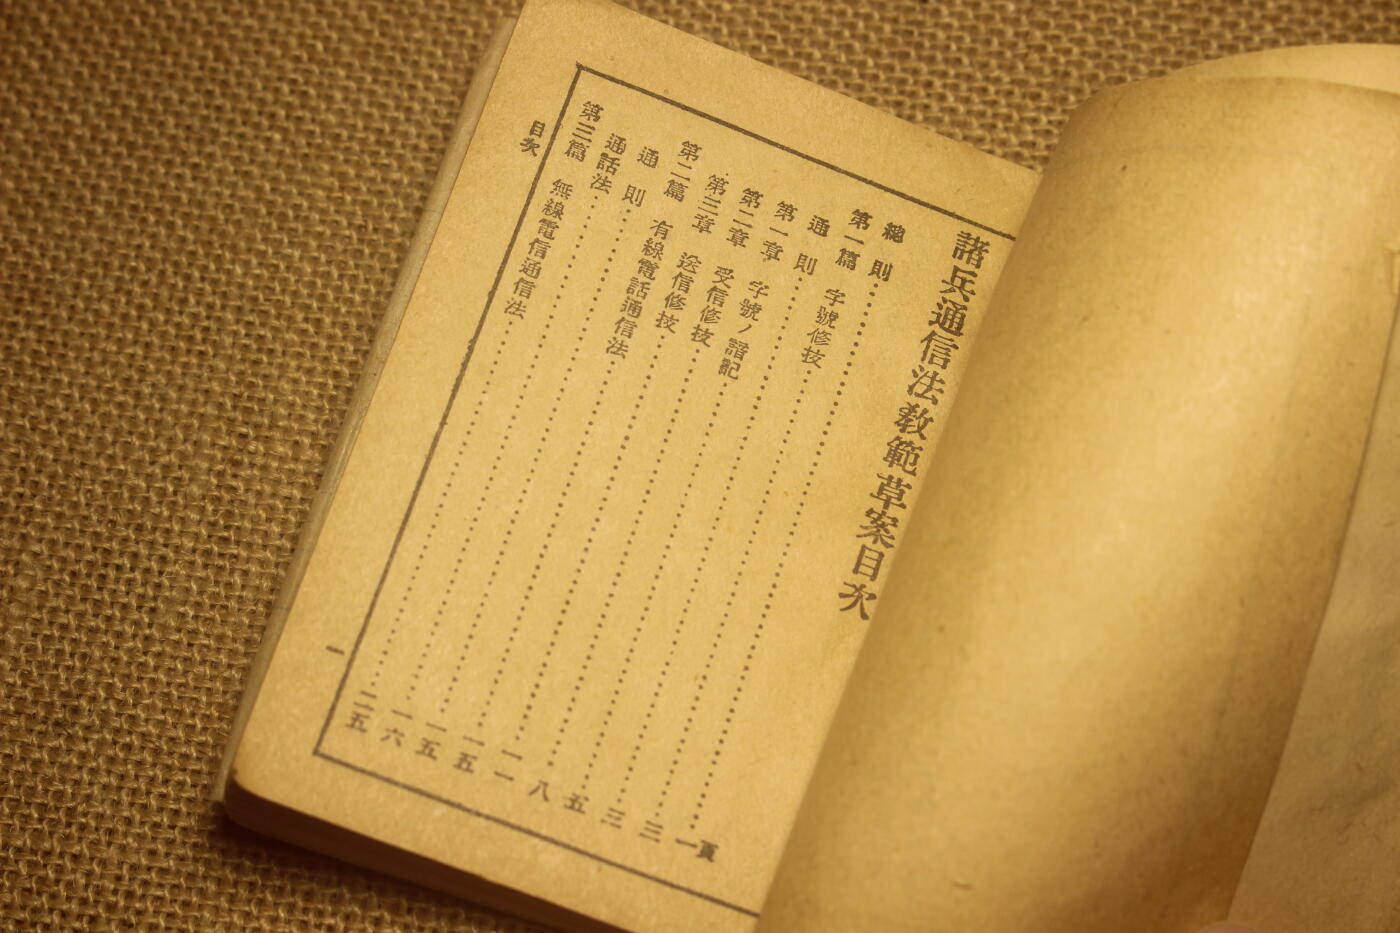 諸兵通信法教範草案目次
總則……一頁
第一篇 字號修技……三
通則……三
第一章 字號ノ諳記……五
第二章 受信修技……八
第三章 送信修技……一一
第二篇 有線電話通信法……一五
通則……一五
通話法……一六
第三篇 無線電信通信法……二五
目次
一